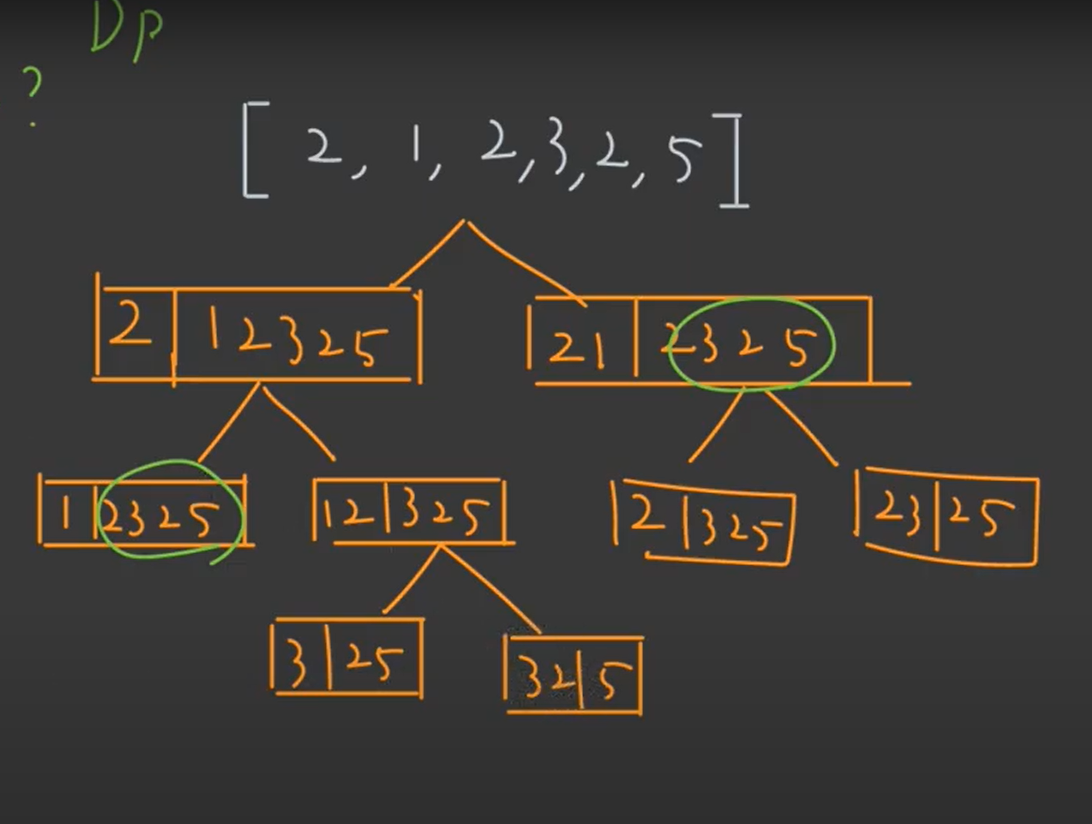 Dp
?
[ 2, 1, 2, 3, 2, 5 ]
2 | 1 2 3 2 5
2 1 | 2 3 2 5
1 | 2 3 2 5
1 2 | 3 2 5
2 | 3 2 5
2 3 | 2 5
3 | 2 5
3 2 | 5